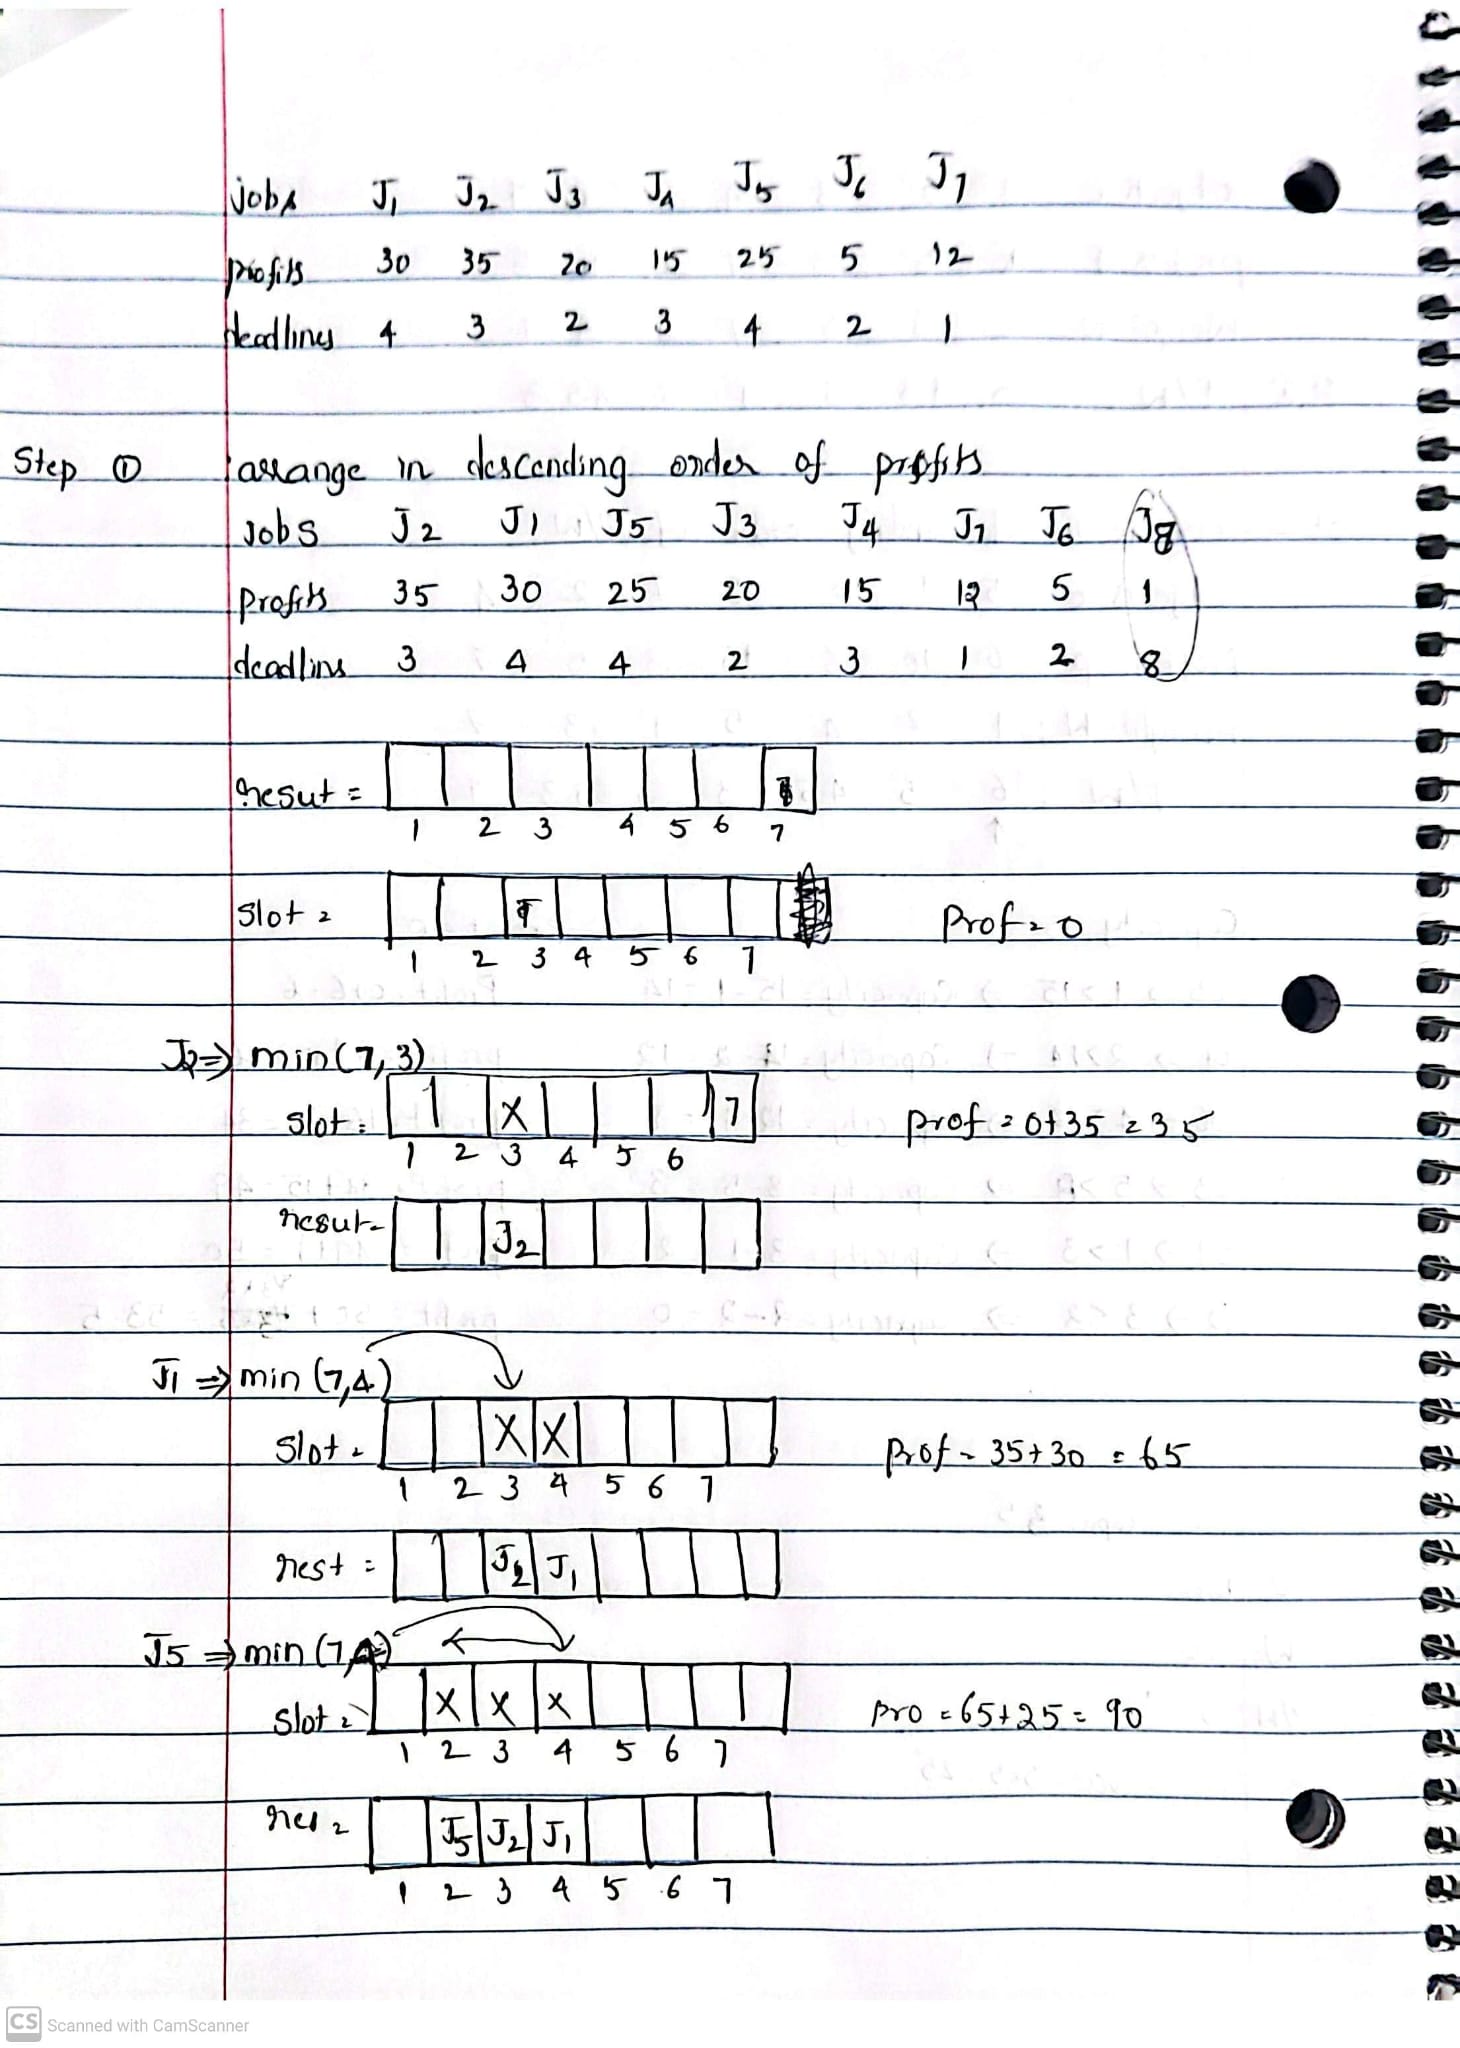 jobs J1 J2 J3 J4 J5 J6 J7
profits 30 35 20 15 25 5 12
deadlines 4 3 2 3 4 2 1
Step ① arrange in descending order of profits
Jobs J2 J1 J5 J3 J4 J7 J6 J8
Profits 35 30 25 20 15 12 5 1
deadlins 3 4 4 2 3 1 2 8
resut =
1 2 3 4 5 6 7
Slot = Prof = 0
1 2 3 4 5 6 7
J2 ⇒ min(7,3)
slot = X 7 prof = 0+35 = 35
1 2 3 4 5 6
resut = J2
J1 ⇒ min (7,4)
slot = X X Prof = 35+30 = 65
1 2 3 4 5 6 7
rest = J2 J1
J5 ⇒ min (7,
slot = X X X pro = 65+25 = 90
1 2 3 4 5 6 7
res = J5 J2 J1
1 2 3 4 5 6 7
CS Scanned with CamScanner